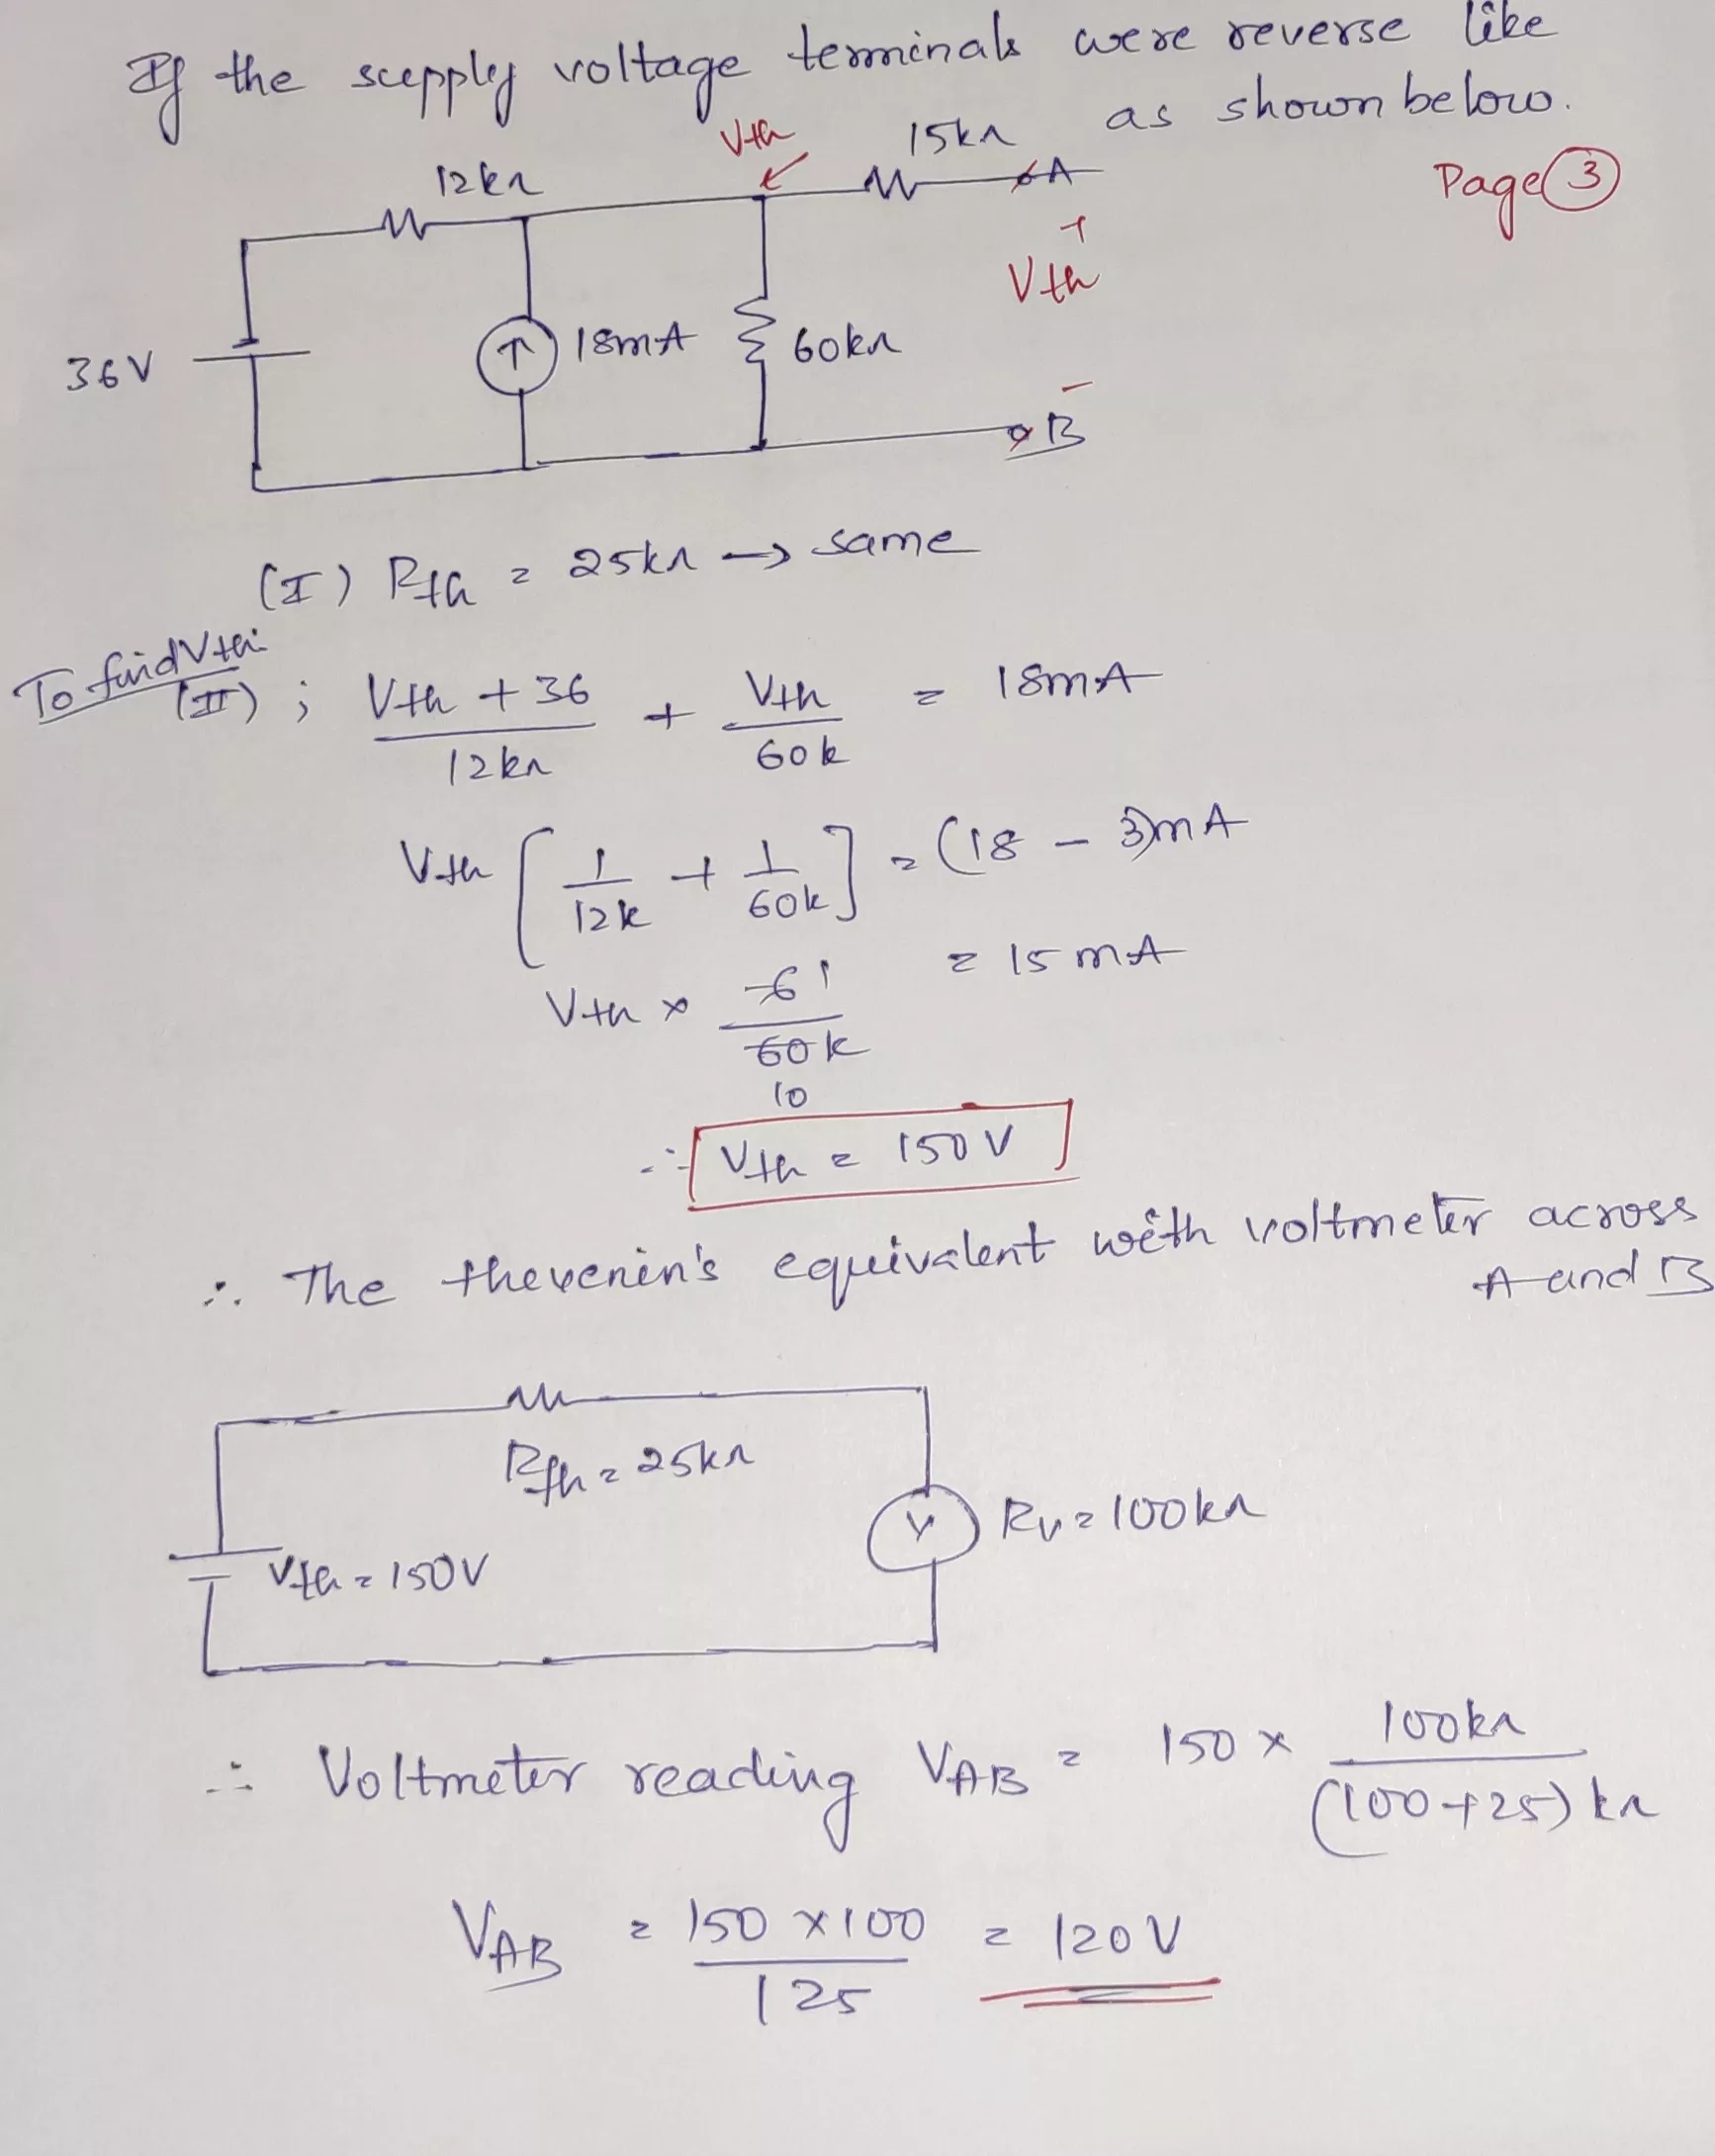 If the supply voltage terminals were reverse like
as shown below.
Page 3
Vth
12kΩ
15kΩ
A
+
Vth
-
36V
18mA
60kΩ
B
(I) Rth = 25kΩ → same
To find Vth:
(II) ; Vth + 36 / 12kΩ + Vth / 60k = 18mA
Vth [ 1/12k + 1/60k ] = (18 - 3)mA
Vth × 6 1 / 60k 10 = 15mA
∴ Vth = 150V
∴ The thevenin's equivalent with voltmeter across
A and B
Rth = 25kΩ
Vth = 150V
V
Rv = 100kΩ
∴ Voltmeter reading VAB = 150 × 100kΩ / (100+25)kΩ
VAB = 150 × 100 / 125 = 120V